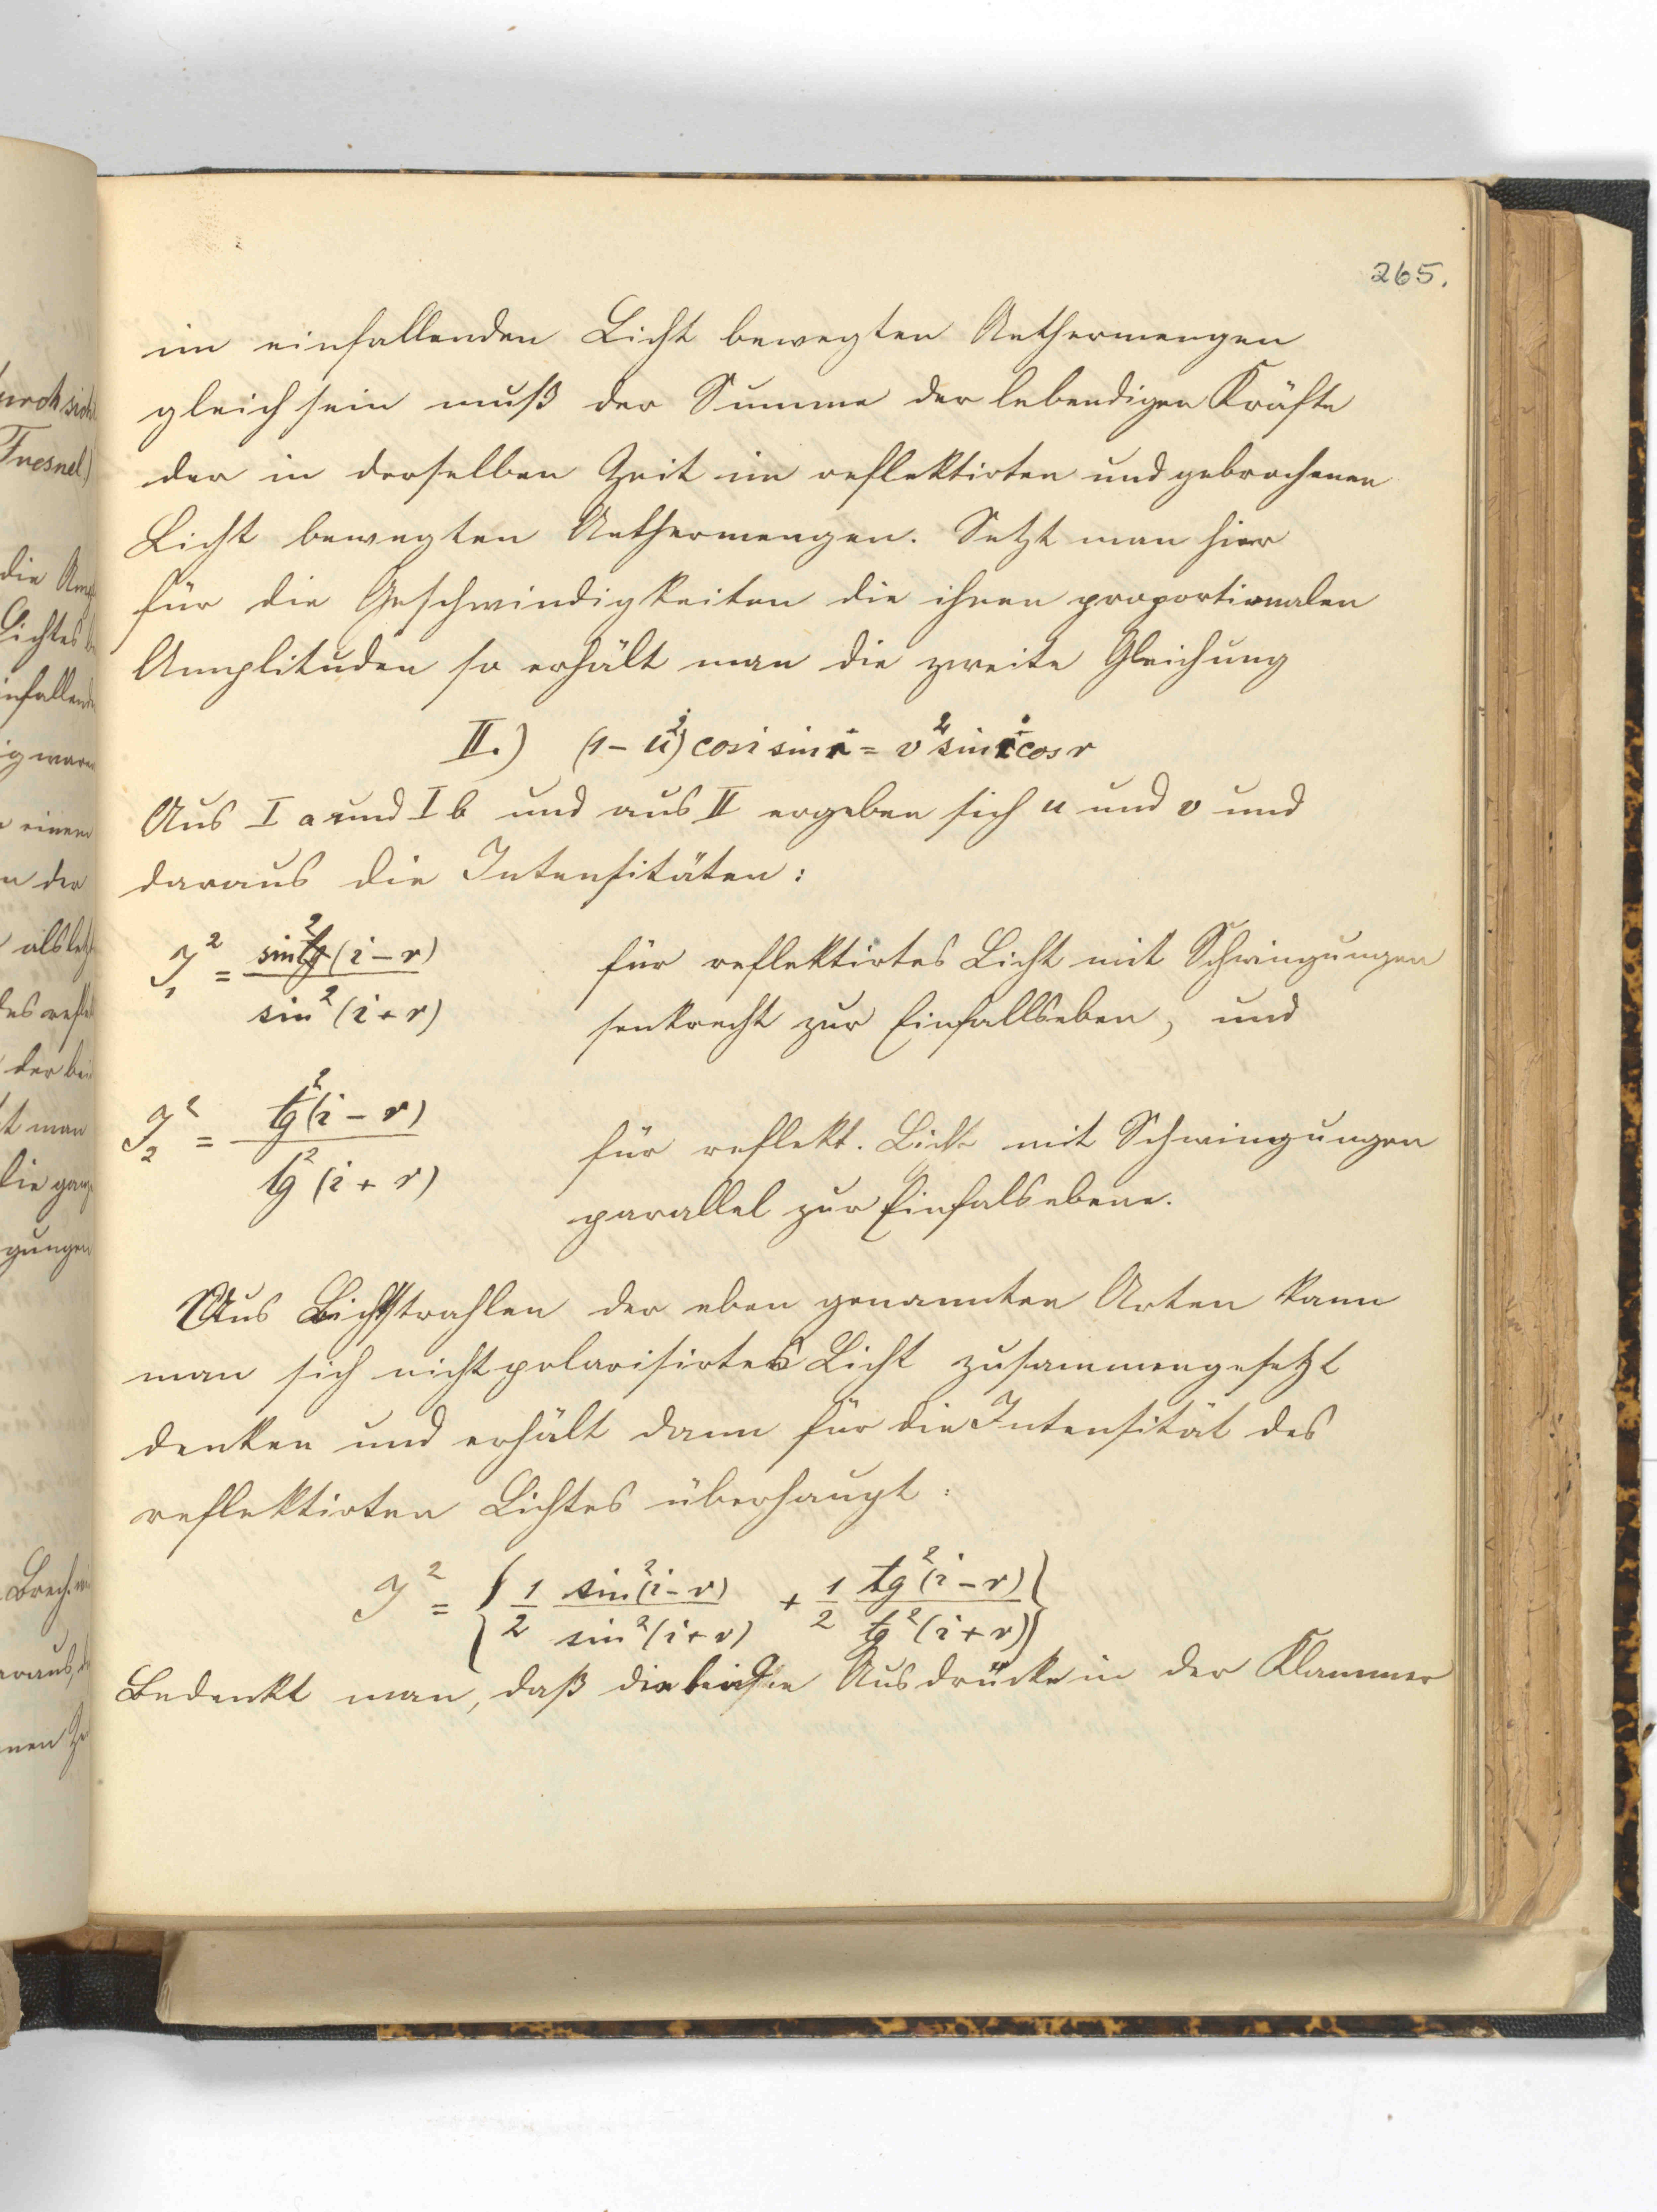 265.
im einfallenden Licht bewegten Aethermengen
gleich sein muß der Summe der lebendigen Kräfte
der in derselben Zeit im reflektirten und gebrochenen
Licht bewegten Aethermengen. Setzt man hier
für die Geschwindigkeiten die ihnen proportionalen
Amplituden so erhält man die zweite Gleichung
II.) (1 - u²) cos i sin r = v² sin i cos r
Aus I a und I b und aus II ergeben sich u und v und
daraus die Intensitäten:
J₁² = sin² (i - r) / sin² (i + r) für reflektirtes Licht mit Schwingungen
senkrecht zur Einfallseben, und
J₂² = tg² (i - r) / tg² (i + r) für reflekt. Licht mit Schwingungen
parallel zur Einfalsebene.
Aus Lichtstrahlen der eben genannten Arten kann
man sich nicht polarisirtes Licht zusammengesetzt
denken und erhält dann für die Intensität des
reflektirten Lichtes überhaupt:
J² = { 1/2 sin² (i - r) / sin² (i + r) + 1/2 tg² (i - r) / tg² (i + r) }
Bedenkt man, daß die beiden Ausdrücke in der Klammer